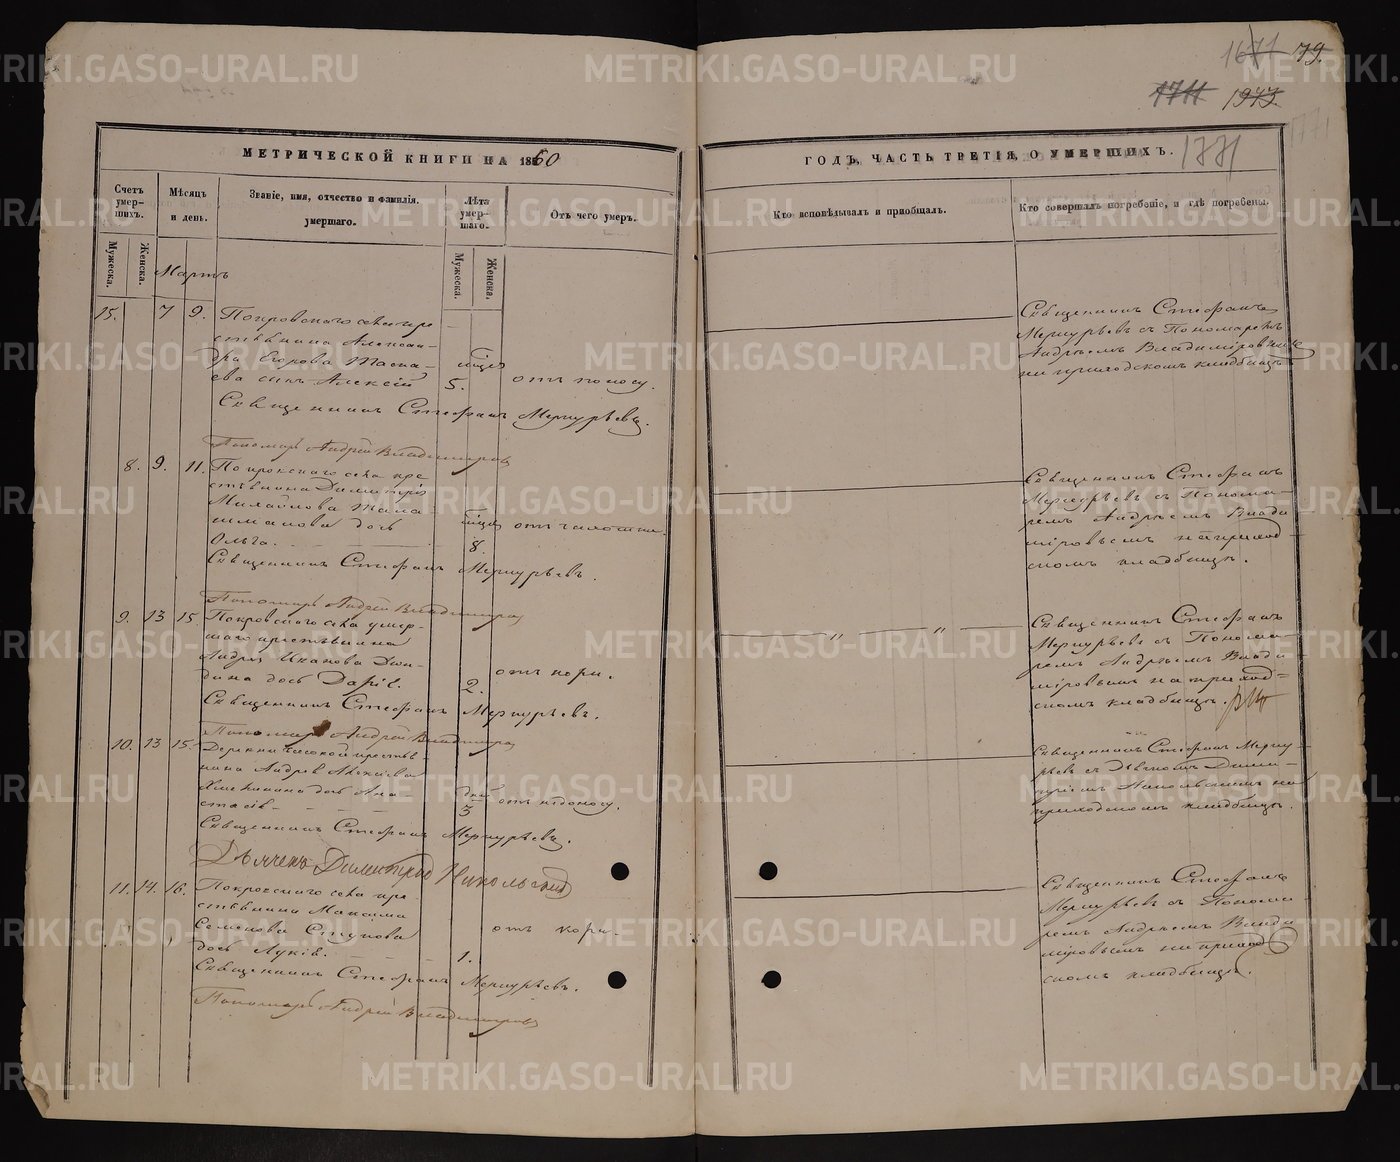 1671 79.
1711 1943.
1771
МЕТРИЧЕСКОЙ КНИГИ НА 1860
ГОДЪ, ЧАСТЬ ТРЕТІЯ, О УМЕРШИХЪ.
Счетъ умер-
шихъ.
Мужеска.
Женска.
Мѣсяцъ
и день.
Званіе, имя, отчество и фамилія
умершаго.
Лѣта
умер-
шаго.
Мужеска.
Женска.
Отъ чего умеръ.
Кто исповѣдывалъ и пріобщалъ.
Кто совершалъ погребеніе, и гдѣ погребены.
Мартъ
15. 7 9. Покровскаго села кре
стьянина Алексан-
дра Егорова
сынъ Алексій 5. отъ поносу.
Священникъ Стефанъ Меркурьевъ.
Пономарь Андрей Владимировъ
Священникъ Стефанъ
Меркурьевъ съ Пономаремъ
Андреемъ Владиміровымъ
на приходскомъ кладбищѣ
8. 9. 11. Покровскаго села кре
стьянина Димитрія
Михайлова
дочь
Ольга. 8.
Священникъ Стефанъ Меркурьевъ.
Пономарь Андрей Владимировъ
Священникъ Стефанъ
Меркурьевъ съ Понома-
ремъ Андреемъ Влади
міровымъ на приход-
скомъ кладбищѣ.
9. 13 15 Покровскаго села умер-
шаго крестьянина
Андрея Иванова
дочь Дарія. 2. отъ кори.
Священникъ Стефанъ Меркурьевъ.
Пономарь Андрей Владимировъ
Священникъ Стефанъ
Меркурьевъ съ Понома
ремъ Андреемъ Влади
міровымъ на приход-
скомъ кладбищѣ.
10. 13 15. Деревни крестья-
нина Андрея Алексѣева
дочь Ана-
стасія дней 3
Священникъ Стефанъ Меркурьевъ.
Дьячекъ Димитрій Никольскій
Священникъ Стефанъ Мерку-
рьевъ съ Дьячкомъ Дими-
тріемъ Никольскимъ на
приходскомъ кладбищѣ.
11. 14. 16. Покровскаго села кре-
стьянина Максима
Семенова Ступова
дочь 1. отъ кори.
Священникъ Стефанъ Меркурьевъ.
Пономарь Андрей Владимировъ
Священникъ Стефанъ
Меркурьевъ съ Понома-
ремъ Андреемъ Влади
міровымъ на приход
скомъ кладбищѣ.
METRIKI.GASO-URAL.RU